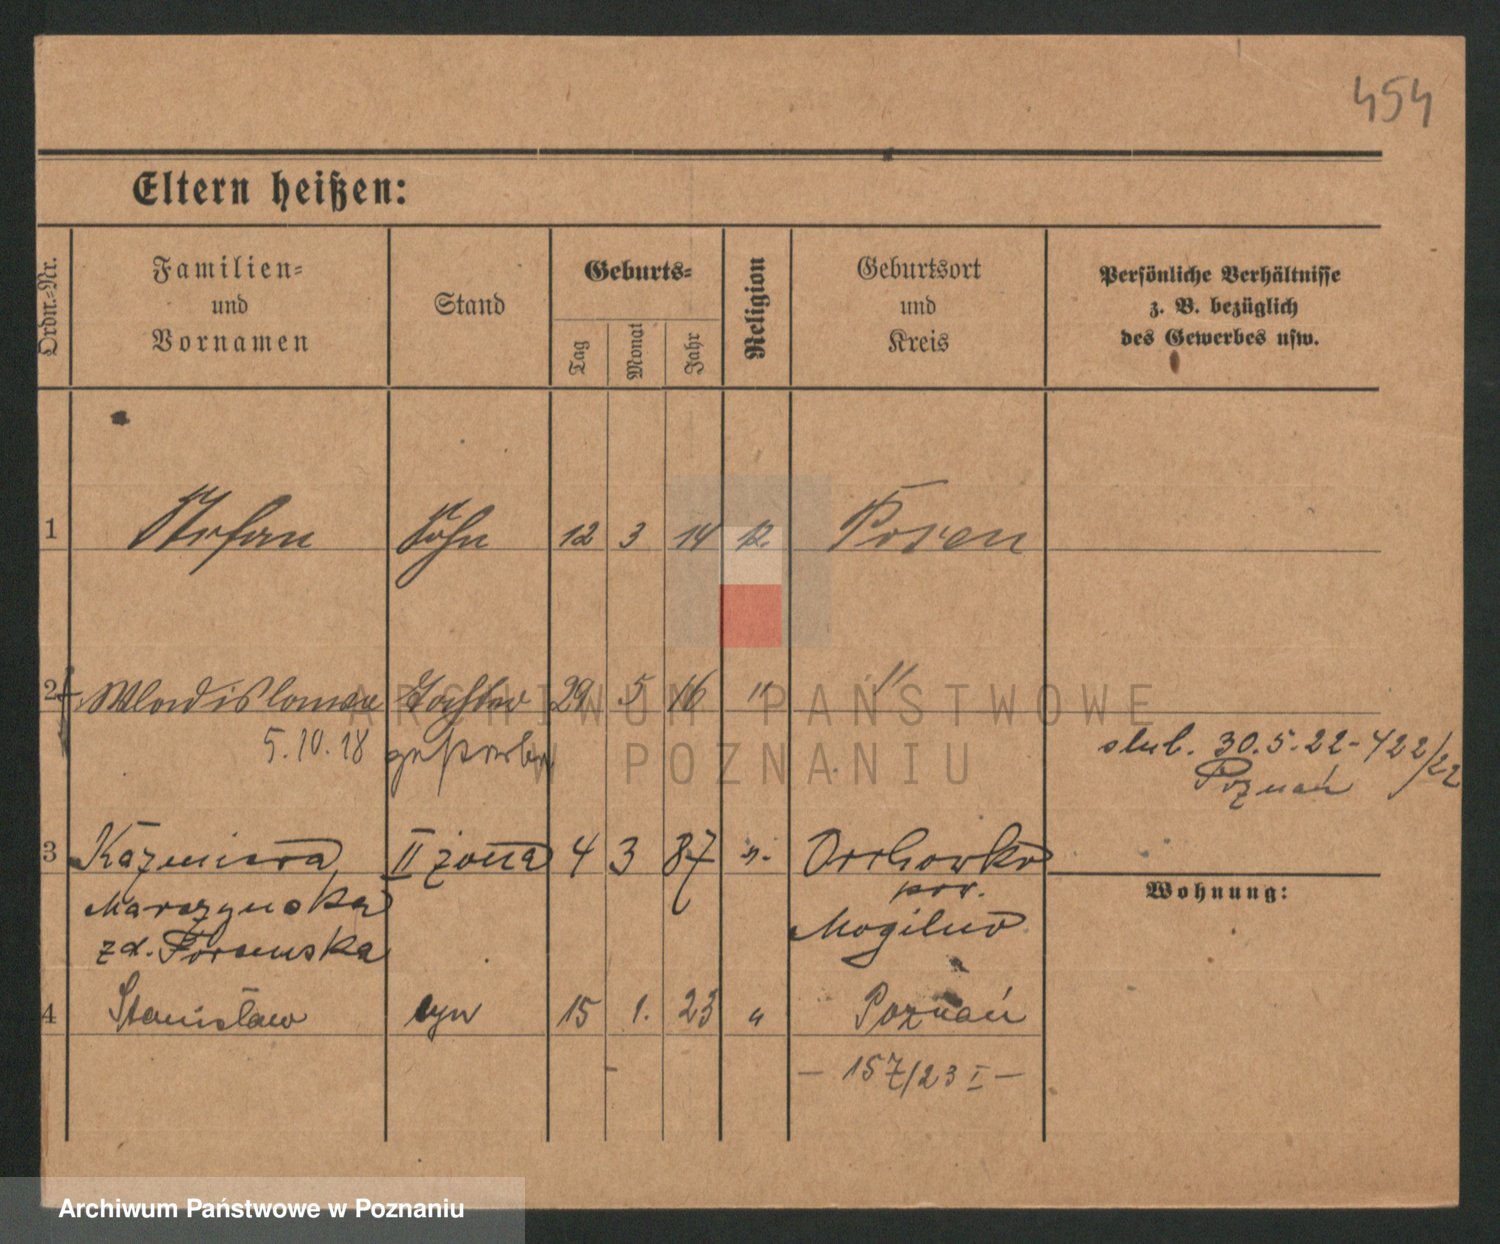 454
Eltern heißen:
Ordn.-Nr.
Familien-
und
Vornamen
Stand
Geburts-
Tag
Monat
Jahr
Religion
Geburtsort
und
Kreis
Persönliche Verhältnisse
z. B. bezüglich
des Gewerbes usw.
1 Stefan Sohn 12 3 14 Posen
2 Wladislawa Tochter 29 5 16 " "
5.10.18 gestorben
ślub. 30.5.22 - 422/22
Poznań
3 Kazmiera II żona 4 3 87 -"- Orchowko
pow.
Marszynska Mogilno
zd.
4 Stanisław syn 15 1. 23 " Poznań
- 157/23 I -
Wohnung:
ARCHIWUM PAŃSTWOWE
W POZNANIU
Archiwum Państwowe w Poznaniu